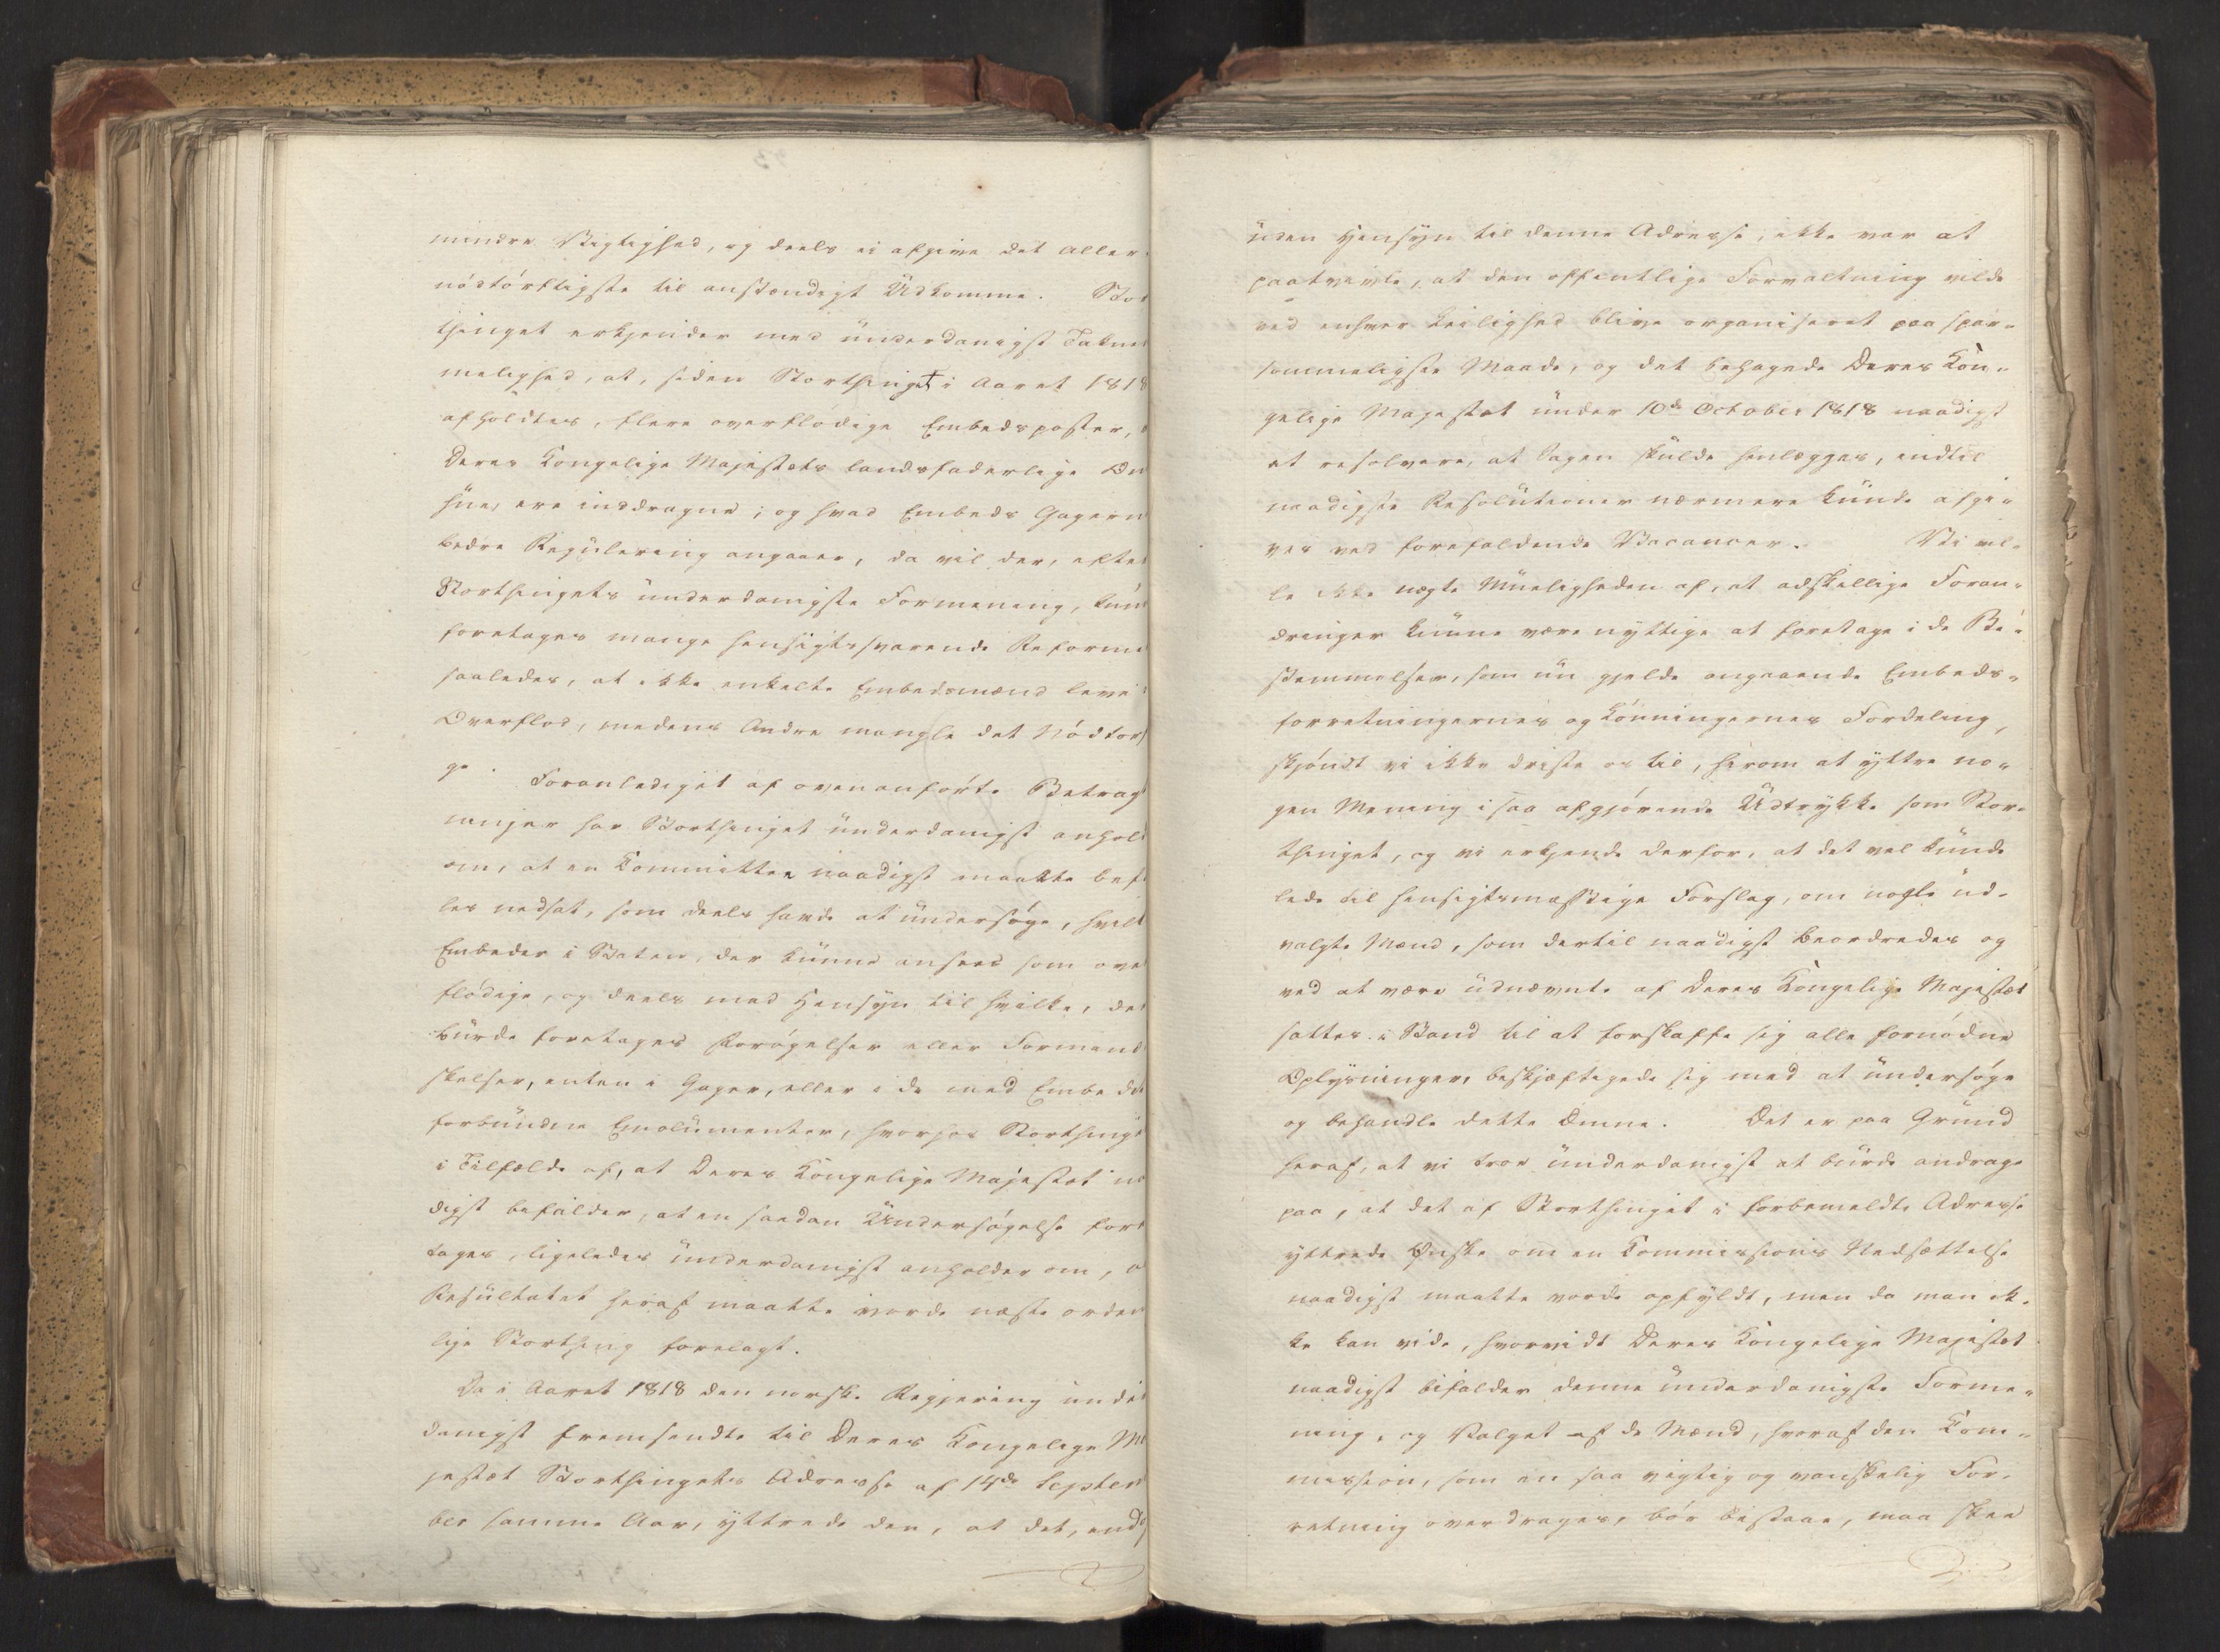 mindre Vigtighed, og deels ei afgive det aller-
nödtörftigste til anstændigt Udkomme. Stor
thinget erkjender med underdanigst Taknem
melighed, at, siden Storthinget i Aaret 1818
afholdtes, flere overflödige Embedsposter,
Deres Kongelige Majestæts landsfaderlige Om
hue, ere inddragne; og hvad Embeds Gagern
bedre Regulering angaaer, da vil der, efter
Storthingets underdanigste Formening, kun
foretages mange hensigtssvarende Reforme
saaledes, at ikke enkelte Embedsmænd leve i
Overflod, medens Andre mangle det Nödtörf
ge. Foranlediget af ovenanförte Betragt
ninger har Storthinget underdanigst anhold
om, at en Kommittee naadigst maatte befa
les nedsat, som deels havde at undersöge, hvilk
Embeder i Staten, der kunne ansees som over
flödige, og deels med Hensyn til hvilke, der
burde foretages Forögelser eller Formind
skelser, enten i Gager, eller i de med Embedet
forbundne Emolumenter, hvorhos Storthinget
i Tilfælde af, at Deres Kongelige Majestæt naa
digst befalder, at en saadan Undersögelse fore
tages, ligeledes underdanigst anholder om, at
Resultatet heraf maatte vorde næste orden
lige Storthing forelagt.
Da i Aaret 1818 den norske Regjering under
danigst fremsendte til Deres Kongelige Ma
jestæt Storthingets Adresse af 14de Septem
ber samme Aar, yttrede den, at det, endog
uden Hensyn til denne Adresse, ikke var at
paatvivle, at den offentlige Forvaltning vilde
ved enhver Leilighed blive organiseret paa spar-
sommeligste Maade, og det behagede Deres Kon-
gelige Majestæt under 10de October 1818 naadigst
at resolvere, at Sagen skulde henlægges, indtil
naadigste Resolutioner nærmere kunde afgi-
ves ved forefaldende Vacancer. Vi vil-
le ikke nægte Mueligheden af, at adskillige Foran-
dringer kunne være nyttige at foretage i de Be-
stemmelser, som nu gjelde angaaende Embeds-
forretningernes og Lönningernes Fordeling,
skjöndt vi ikke driste os til, herom at yttre no-
gen Mening i saa afgjörende Udtrykke som Stor-
thinget, og vi erkjende derfor, at det vel kunde
lede til hensigtsmæssige Forslag, om nogle ud-
valgte Mænd, som dertil naadigst beordredes og
ved at være udnævnte af Deres Kongelige Majestæt
sattes i Stand til at forskaffe sig alle fornödne
Oplysninger, beskjæftigede sig med at undersöge
og behandle dette Emne. Det er paa Grund
heraf, at vi troe underdanigst at burde andrage
paa, at det af Storthinget i forbemeldte Adresse
yttrede Ønske om en Kommissions Nedsættelse
naadigst maatte vorde opfyldt, men da man ik-
ke kan vide, hvorvidt Deres Kongelige Majestæt
naadigst bifalder denne underdanigste Forme-
ning, og Valget af de Mænd, hvoraf den Kom-
mission, som en saa vigtig og vanskelig For-
retning overdrages, bör bestaae, maa skee